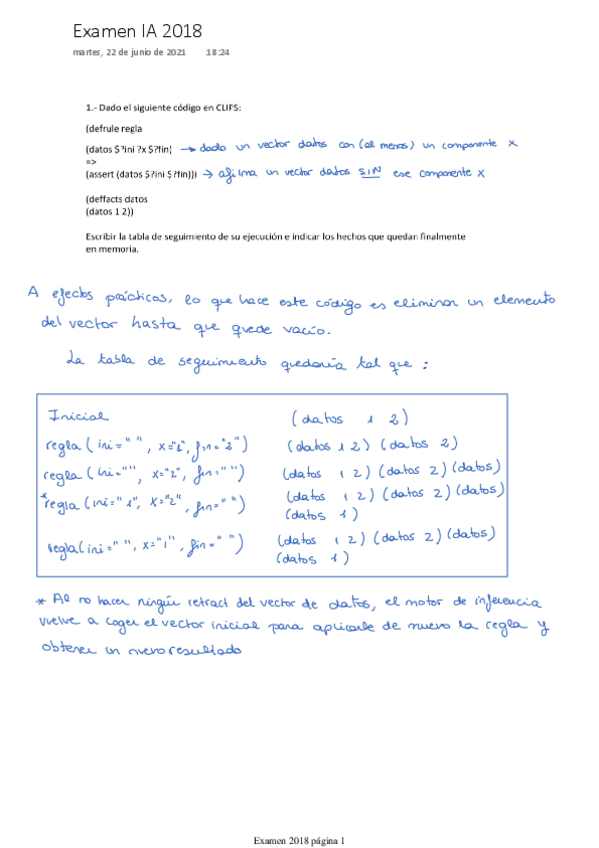 Examen IA 2018
martes, 22 de junio de 2021 18:24
1.- Dado el siguiente código en CLIPS:
(defrule regla
(datos $?ini ?x $?fin) → dado un vector datos con (al menos) un componente x
=>
(assert (datos $?ini $?fin))) → afirma un vector datos SIN ese componente x
(deffacts datos
(datos 1 2))
Escribir la tabla de seguimiento de su ejecución e indicar los hechos que quedan finalmente
en memoria.
A efectos prácticos, lo que hace este código es eliminar un elemento
del vector hasta que quede vacío.
La tabla de seguimiento quedaría tal que :
Inicial (datos 1 2)
regla (ini=" ", x="1", fin="2") (datos 1 2) (datos 2)
regla (ini="", x="2", fin="") (datos 1 2) (datos 2) (datos)
*regla (ini="1", x="2", fin=" ") (datos 1 2) (datos 2) (datos)
(datos 1)
regla (ini=" ", x="1", fin=" ") (datos 1 2) (datos 2) (datos)
(datos 1)
* Al no hacer ningún retract del vector de datos, el motor de inferencia
vuelve a coger el vector inicial para aplicarle de nuevo la regla y
obtener un nuevo resultado
Examen 2018 página 1